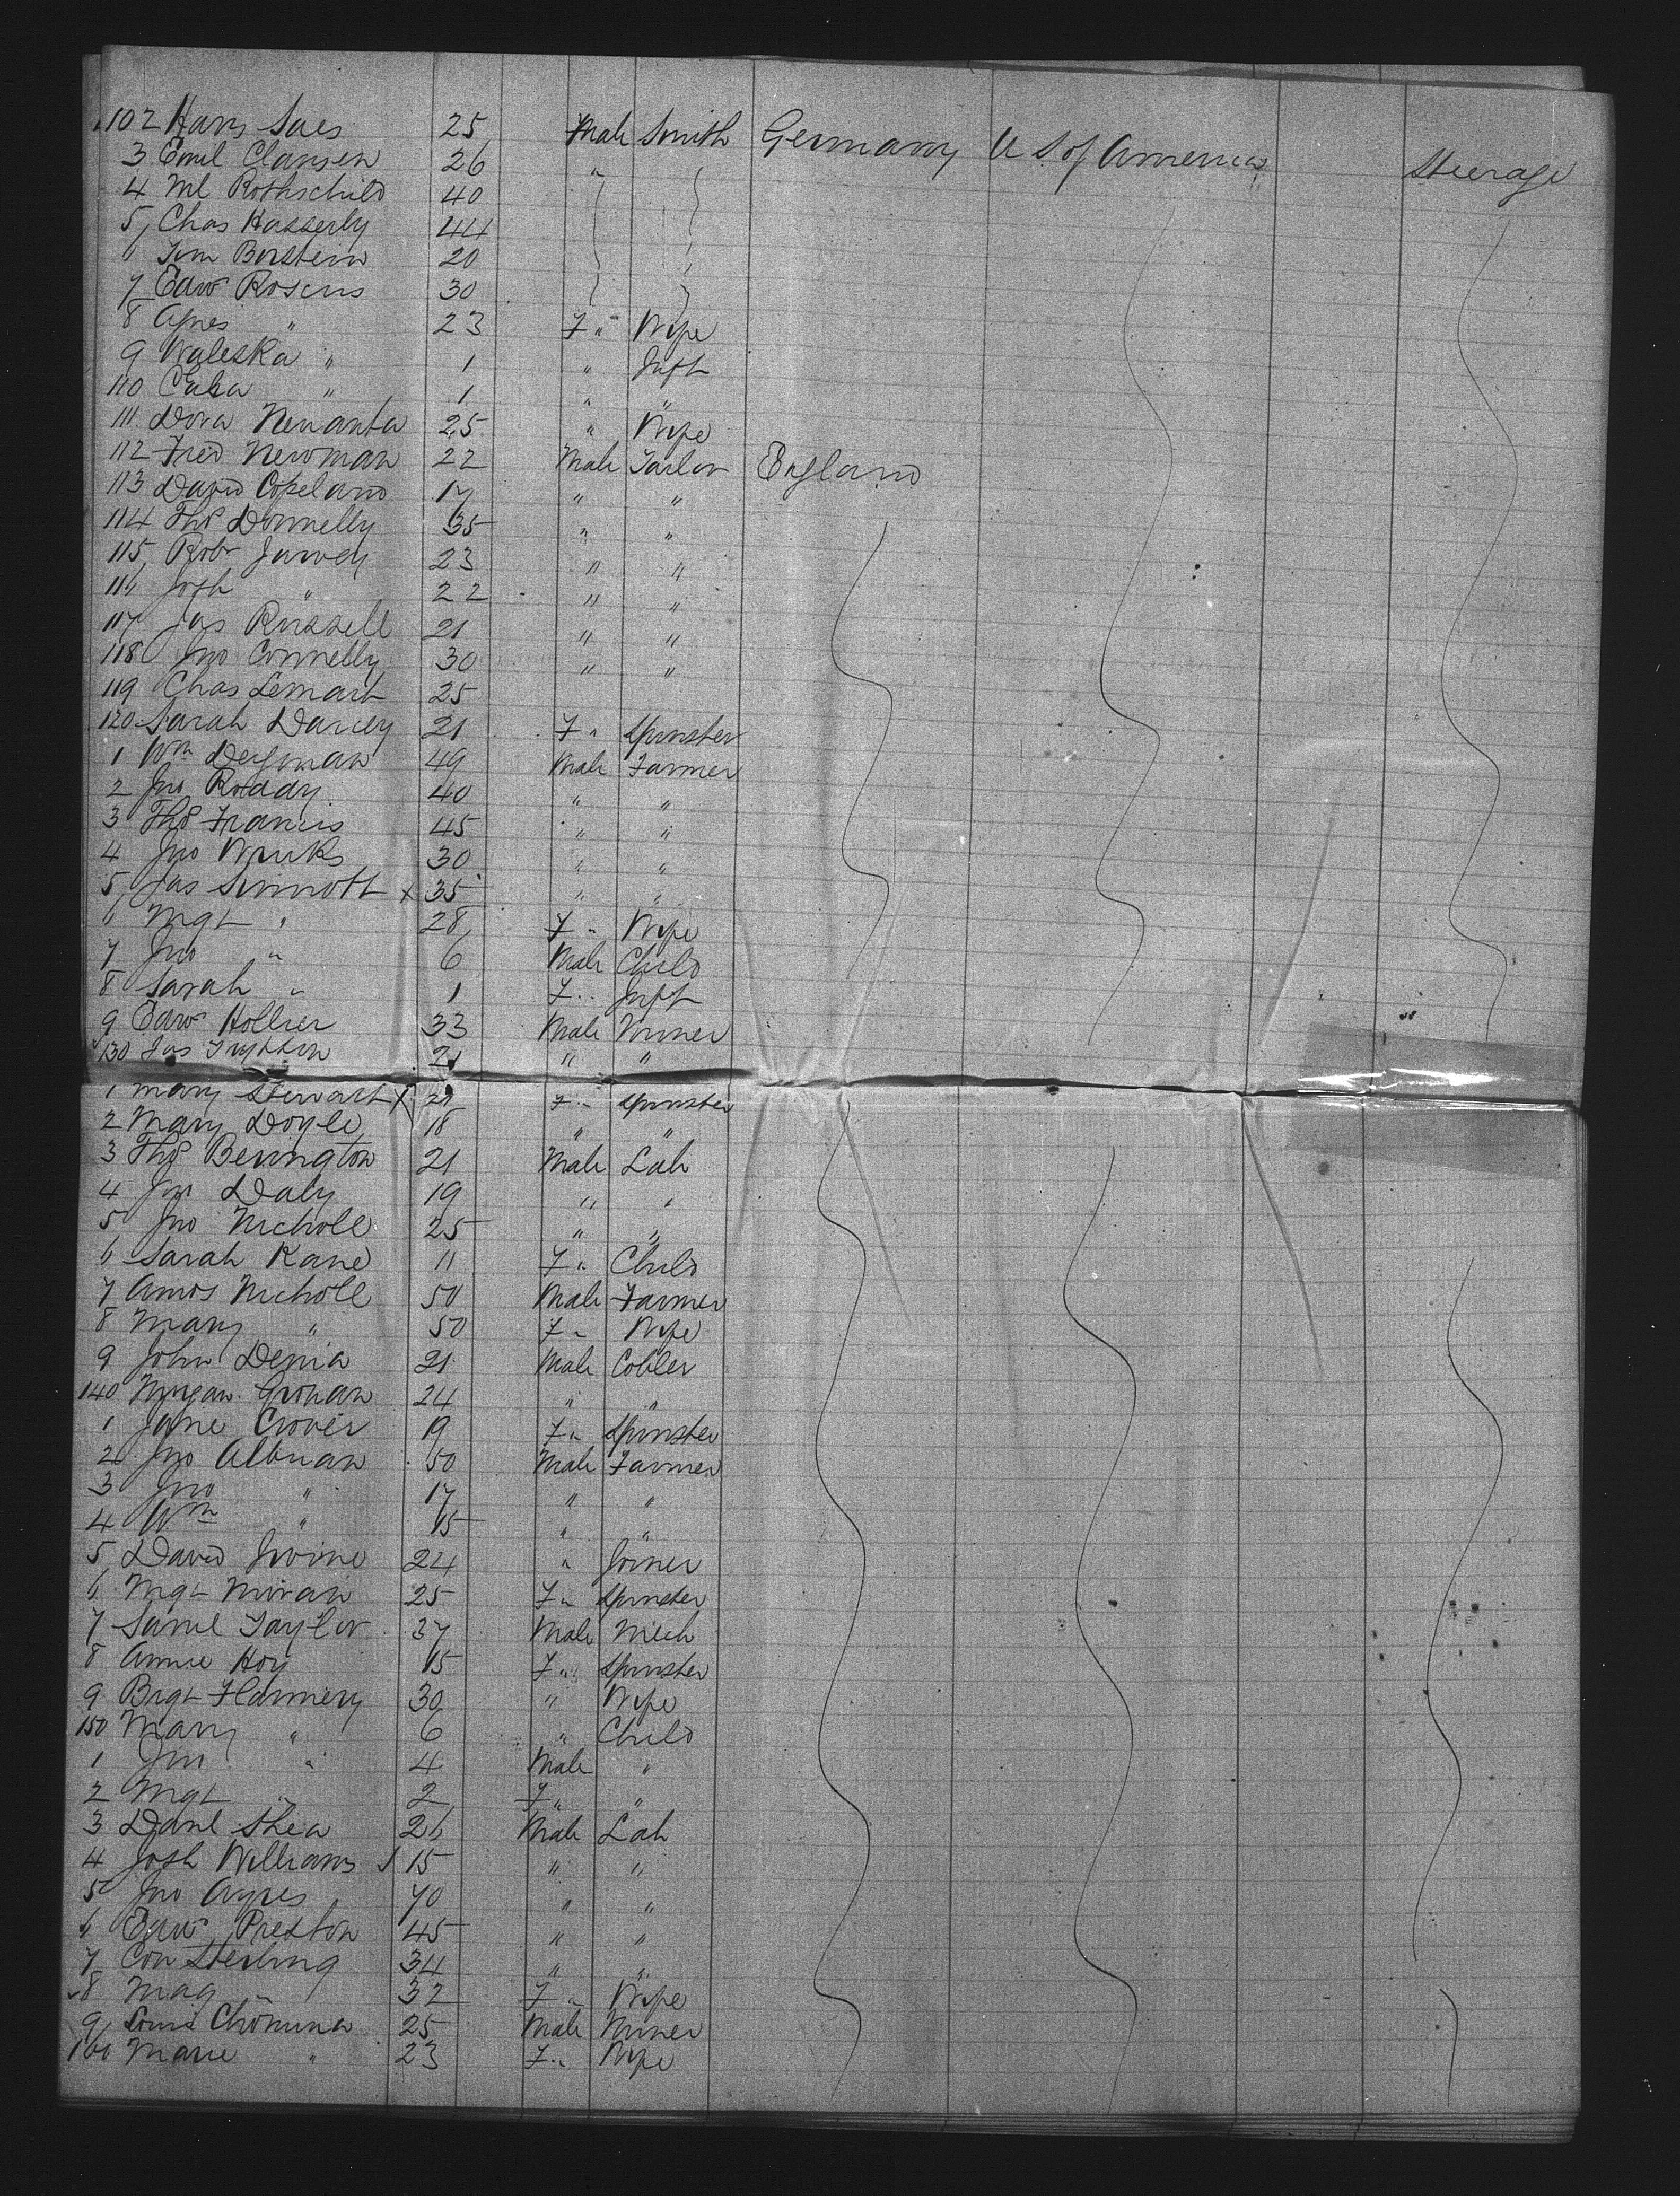 102 Hans Saes 25 Male Smith Germany U S of America Steerage
3 Emil Clansen 26 "
4 Ml Rothschild 40
5 Chas Hasserly 44
6 Jim Berstein 20
7 Edwd Rosens 30
8 Agnes " 23 F " Wife
9 Waleska " 1 " Inft
110 " 1 " "
111 Dora 25 " Wife
112 Fred Newman 22 Male Tailor England
113 David Copeland 17 " "
114 Thos Donnelly 35 " "
115 Robt Jarvey 23 " "
116 Josh " 22 " "
117 Jas Russell 21 " "
118 Jno Connelly 30 " "
119 Chas Lemart 25
120 Sarah Darcey 21 F " Spinster
1 Wm Deyman 49 Male Farmer
2 Jno Roddy 40 " "
3 Thos Francis 45 " "
4 Jno Weeks 30 " "
5 Jas Sinnott x 35 " "
6 Mgt " 28 F " Wife
7 Jno " 6 Male Child
8 Sarah " 1 F " Inft
9 Edwd Hollier 33 Male Miner
130 Jas 21 " "
1 Mary Stewart x 29 F " Spinster
2 Mary Doyle 18 " "
3 Thos Bevington 21 Male Lab
4 Jno Daly 19 " "
5 Jno Nicholl 25 " "
6 Sarah Kane 11 F " Child
7 Amos Nicholl 50 Male Farmer
8 Mary " 50 F " Wife
9 John Denia 21 Male Cobler
140 Morgan Gronan 24 " "
1 Jane Crover 19 F " Spinster
2 Jno Albuan 50 Male Farmer
3 Jno " 17 " "
4 Wm " 15 " "
5 David Irvine 24 " Joiner
6 Mgt Moran 25 F " Spinster
7 Saml Taylor 37 Male Mech
8 Annie Hoy 15 F " Spinster
9 Brgt Flannery 30 " Wife
150 Mary " 6 " Child
1 Jno " 4 Male "
2 Mgt " 2 F " "
3 Danl Shea 26 Male Lab
4 Josh Williams 15 " "
5 Jno Ayres 70 " "
6 Edwd Preston 45 " "
7 Con Sterling 34 " "
8 Mag " 32 F " Wife
9 Louis 25 Male Miner
160 Marie " 23 F " Wife